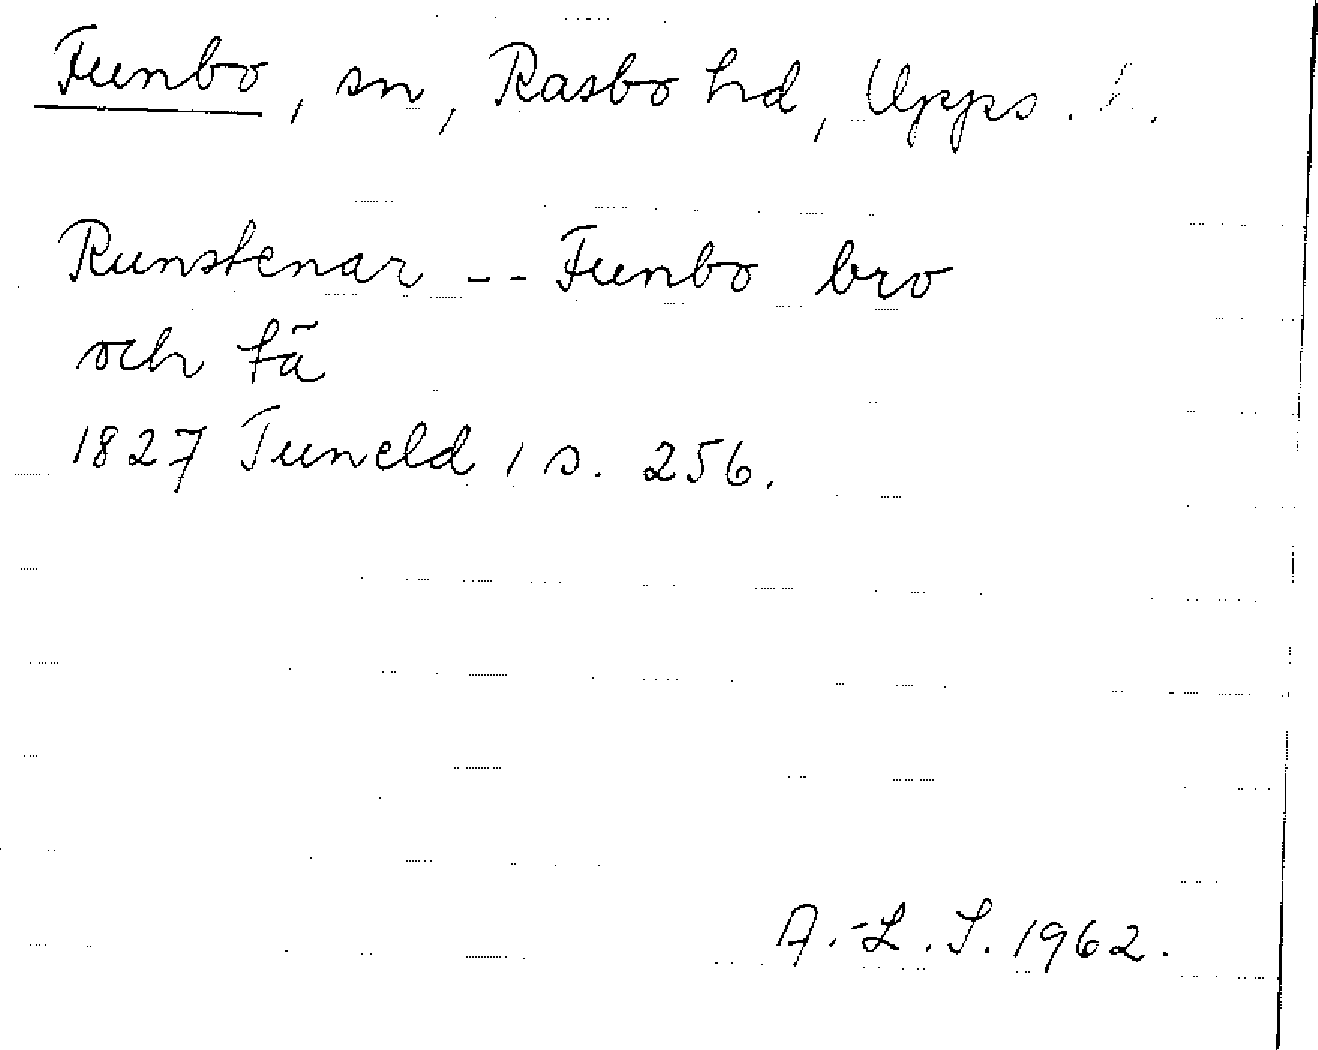 Funbo, sn, Rasbo hd, Upps. l.
Runstenar -- Funbo bro
och fä
1827 Tuneld 1 s. 256.
A.-L. S. 1962.